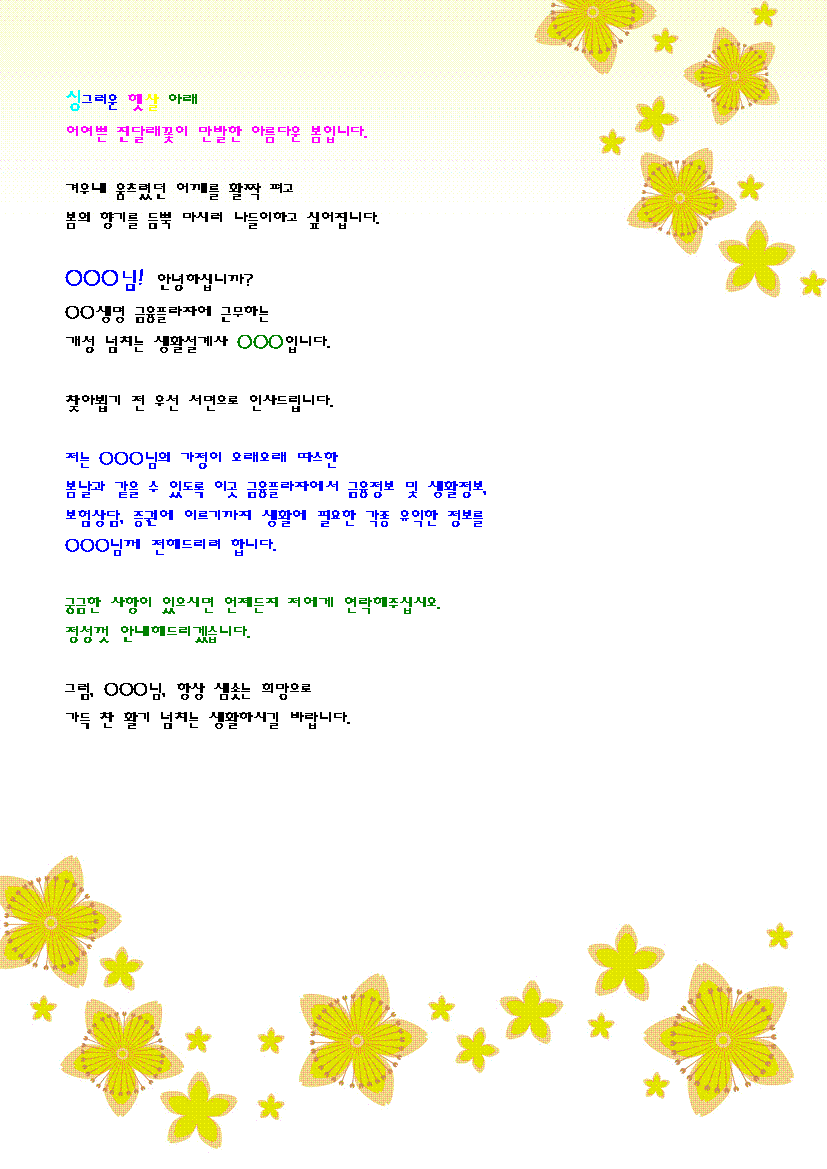 싱그러운 햇살 아래
어여쁜 진달래꽃이 만발한 아름다운 봄입니다.
겨우내 움츠렸던 어깨를 활짝 펴고
봄의 향기를 듬뿍 마시러 나들이하고 싶어집니다.
○○○님! 안녕하십니까?
○○생명 금융플라자에 근무하는
개성 넘치는 생활설계사 ○○○입니다.
찾아뵙기 전 우선 서면으로 인사드립니다.
저는 ○○○님의 가정이 오래오래 따스한
봄날과 같을 수 있도록 이곳 금융플라자에서 금융정보 및 생활정보,
보험상담, 증권에 이르기까지 생활에 필요한 각종 유익한 정보를
○○○님께 전해드리려 합니다.
궁금한 사항이 있으시면 언제든지 저에게 연락해주십시오.
정성껏 안내해드리겠습니다.
그럼, ○○○님, 항상 샘솟는 희망으로
가득 찬 활기 넘치는 생활하시길 바랍니다.